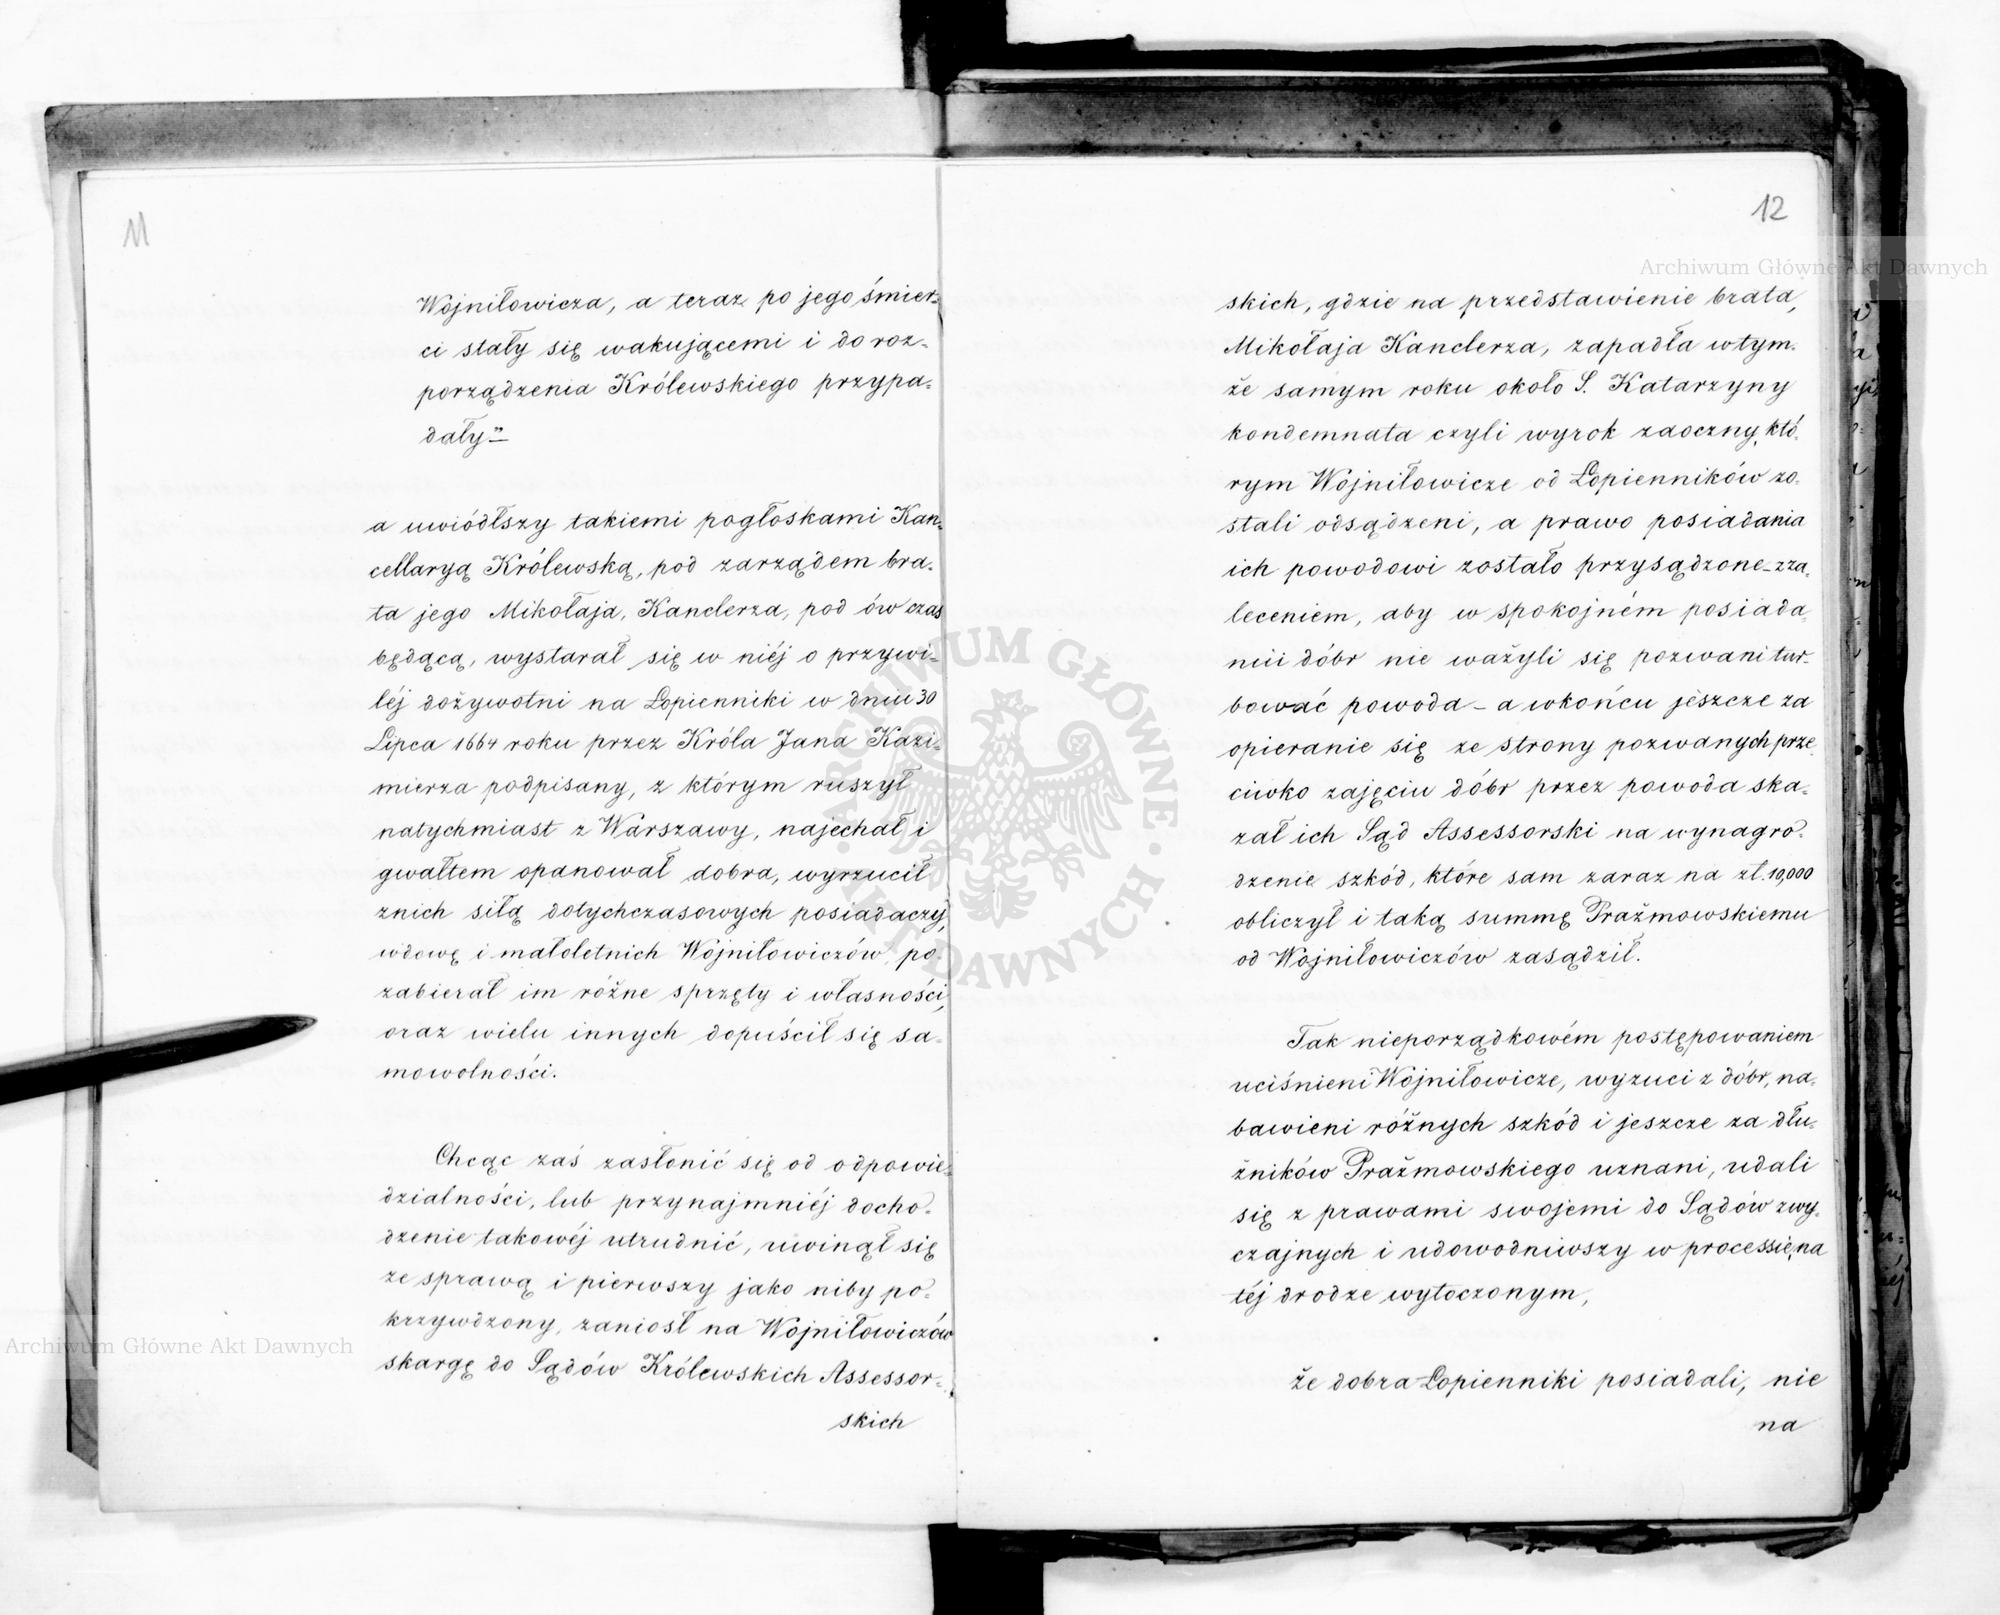 11
Wojniłowicza, a teraz po jego śmier-
ci stały się wakującemi i do roz-
porządzenia Królewskiego przypa-
dały"—
a uwiódłszy takiemi pogłoskami Kan-
cellaryą Królewską, pod zarządem bra-
ta jego Mikołaja, Kanclerza, pod ów czas
będącą, wystarał się w niéj o przywi-
léj dożywotni na Łopienniki w dniu 30
Lipca 1664 roku przez Króla Jana Kazi-
mierza podpisany, z którym ruszył
natychmiast z Warszawy, najechał i
gwałtem opanował dobra, wyrzucił
z nich siłą dotychczasowych posiadaczy,
wdowę i małoletnich Wojniłowiczów, po-
zabierał im różne sprzęty i własności,
oraz wielu innych dopuścił się sa-
mowolności.
Chcąc zaś zasłonić się od odpowie-
dzialności, lub przynajmniéj docho-
dzenie takowéj utrudnić, uwinął się
ze sprawą i pierwszy jako niby po-
krzywdzony, zaniosł na Wojniłowiczów
skargę do Sądów Królewskich Assessor-
skich
12
skich, gdzie na przedstawienie brata,
Mikołaja Kanclerza, zapadła w tym-
że samym roku około S. Katarzyny
kondemnata czyli wyrok zaoczny, któ-
rym Wojniłowicze od Łopienników zo-
stali odsądzeni, a prawo posiadania
ich powodowi zostało przysądzone — z za-
leceniem, aby w spokojném posiada-
niu dóbr nie ważyli się pozwani tur-
bować powoda — a wkońcu jeszcze za
opieranie się ze strony pozwanych prze-
ciwko zajęciu dóbr przez powoda ska-
zał ich Sąd Assessorski na wynagro-
dzenie szkód, które sam zaraz na zł. 10,000
obliczył i taką summę Prażmowskiemu
od Wojniłowiczów zasądził.
Tak nieporządkowém postępowaniem
uciśnieni Wojniłowicze, wyzuci z dóbr, na-
bawieni różnych szkód i jeszcze za dłu-
żników Prażmowskiego uznani, udali
się z prawami swojemi do Sądów zwy-
czajnych i udowodniwszy w processie, na
téj drodze wytoczonym,
że dobra Łopienniki posiadali, nie
na
Archiwum Główne Akt Dawnych
Archiwum Główne Akt Dawnych
ARCHIWUM GŁÓWNE · AKT DAWNYCH ·